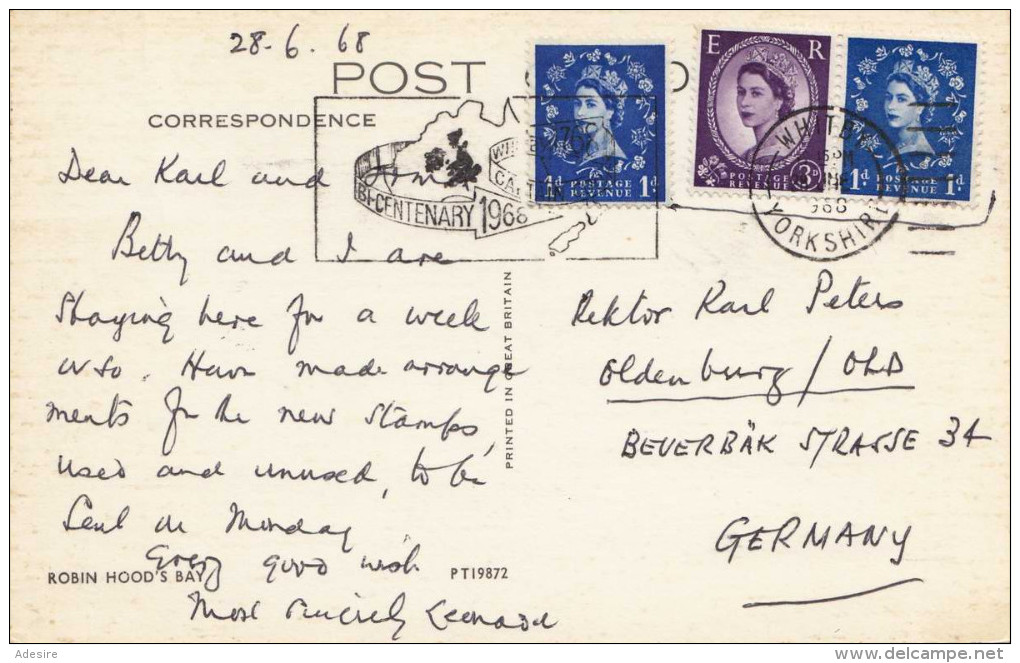 28-6.68
POST
CORRESPONDENCE
E R
POSTAGE REVENUE
1d 1d
POSTAGE REVENUE
3D
POSTAGE REVENUE
1d 1d
WHITBY
YORKSHIRE
BI-CENTENARY 1968
Dear Karl and
Betty and I are
staying here for a week
or so. Have made arrange
ments for the new stamps,
used and unused, to be
sent on Monday
Every good wish
Most sincerely Leonard
Rektor Karl Peters
Oldenburg / OLD
BEVERBÄK STRASSE 34
GERMANY
PRINTED IN GREAT BRITAIN
ROBIN HOOD'S BAY
PT19872
Adesire
delcampe.net